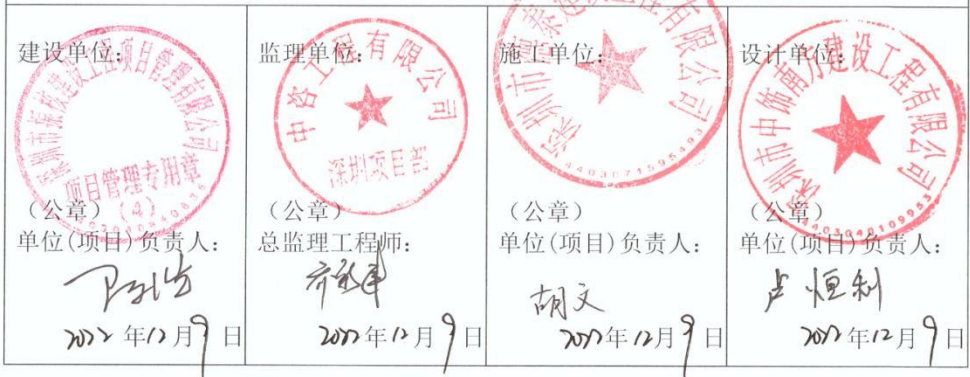 建设单位：
深圳市深投建设工程项目管理有限公司
项目管理专用章
(4)
（公章）
单位(项目)负责人：
2022年12月9日
监理单位：
中咨工程有限公司
深圳项目部
（公章）
总监理工程师：
2022年12月9日
施工单位：
有限公司
4403071595493
（公章）
单位(项目)负责人：
胡文
2022年12月9日
设计单位：
深圳市中饰南方建设工程有限公司
4403040109953
（公章）
单位(项目)负责人：
卢恒利
2022年12月9日